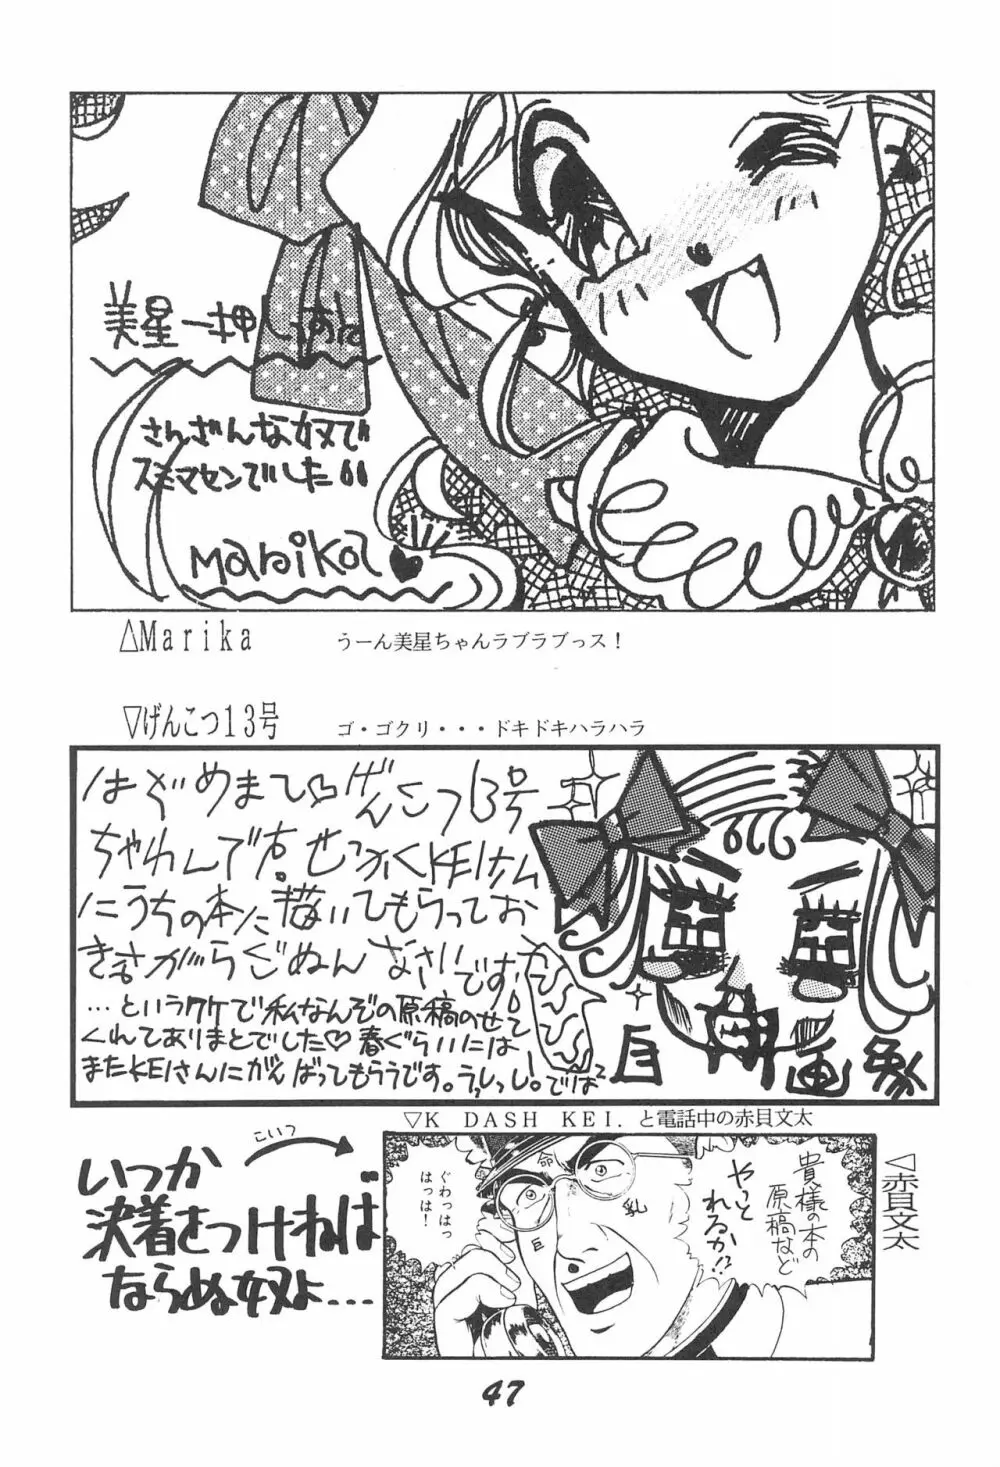 美星一押しっすに
さんざんな奴で
スミマセンでした!!
Marika
△Marika
うーん美星ちゃんラブラブっス!
▽げんこつ13号
ゴ・ゴクリ・・・ドキドキハラハラ
はぢめまて♡げんこつ13号
ちゃんです。せっかくKEIサム
にうちの本に描いてもらってお
きながらごめんなさいです!
…というワケで私なんぞの原稿のせて
くれてありまとでした♡春ぐらいには
またKEIさんにがんばってもらうです。うっしっし。では
巨
画
象
▽K DASH KEI.と電話中の赤貝文太
こいつ
いつか
決着をつけねば
ならぬ奴よ…
貴様の本の
原稿など
やっと
れるか!?
ぐわっはっ
はっは!
命
乳
巨
◁赤貝文太
47